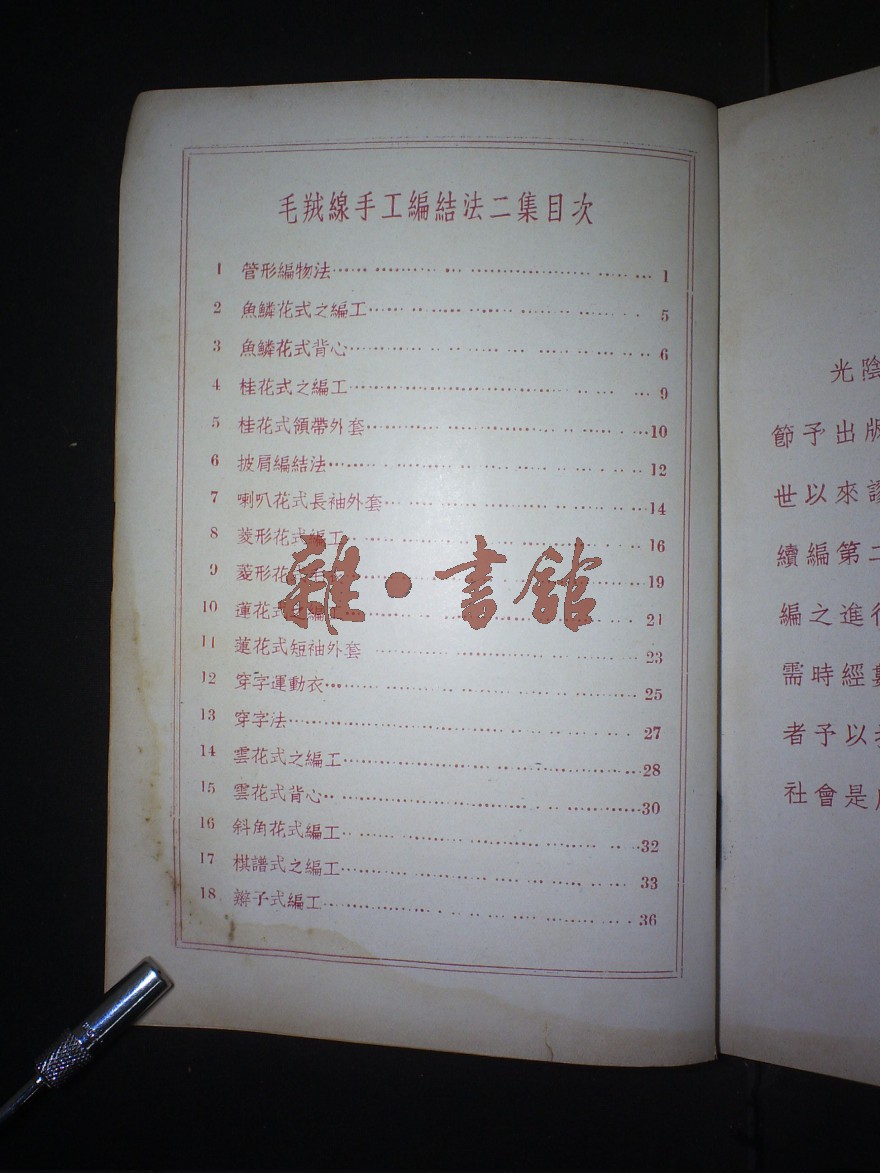 毛羢線手工編結法二集目次
1 管形編物法 1
2 魚鱗花式之編工 5
3 魚鱗花式背心 6
4 桂花式之編工 9
5 桂花式領帶外套 10
6 披肩編結法 12
7 喇叭花式長袖外套 14
8 菱形花式編工 16
9 菱形花 19
10 蓮花式之編工 21
11 蓮花式短袖外套 23
12 穿字運動衣 25
13 穿字法 27
14 雲花式之編工 28
15 雲花式背心 30
16 斜角花式編工 32
17 棋譜式之編工 33
18 辮子式編工 36
雜·書館
光陰
節予出版
世以來
續編第二
編之進行
需時經
者予以
社會是